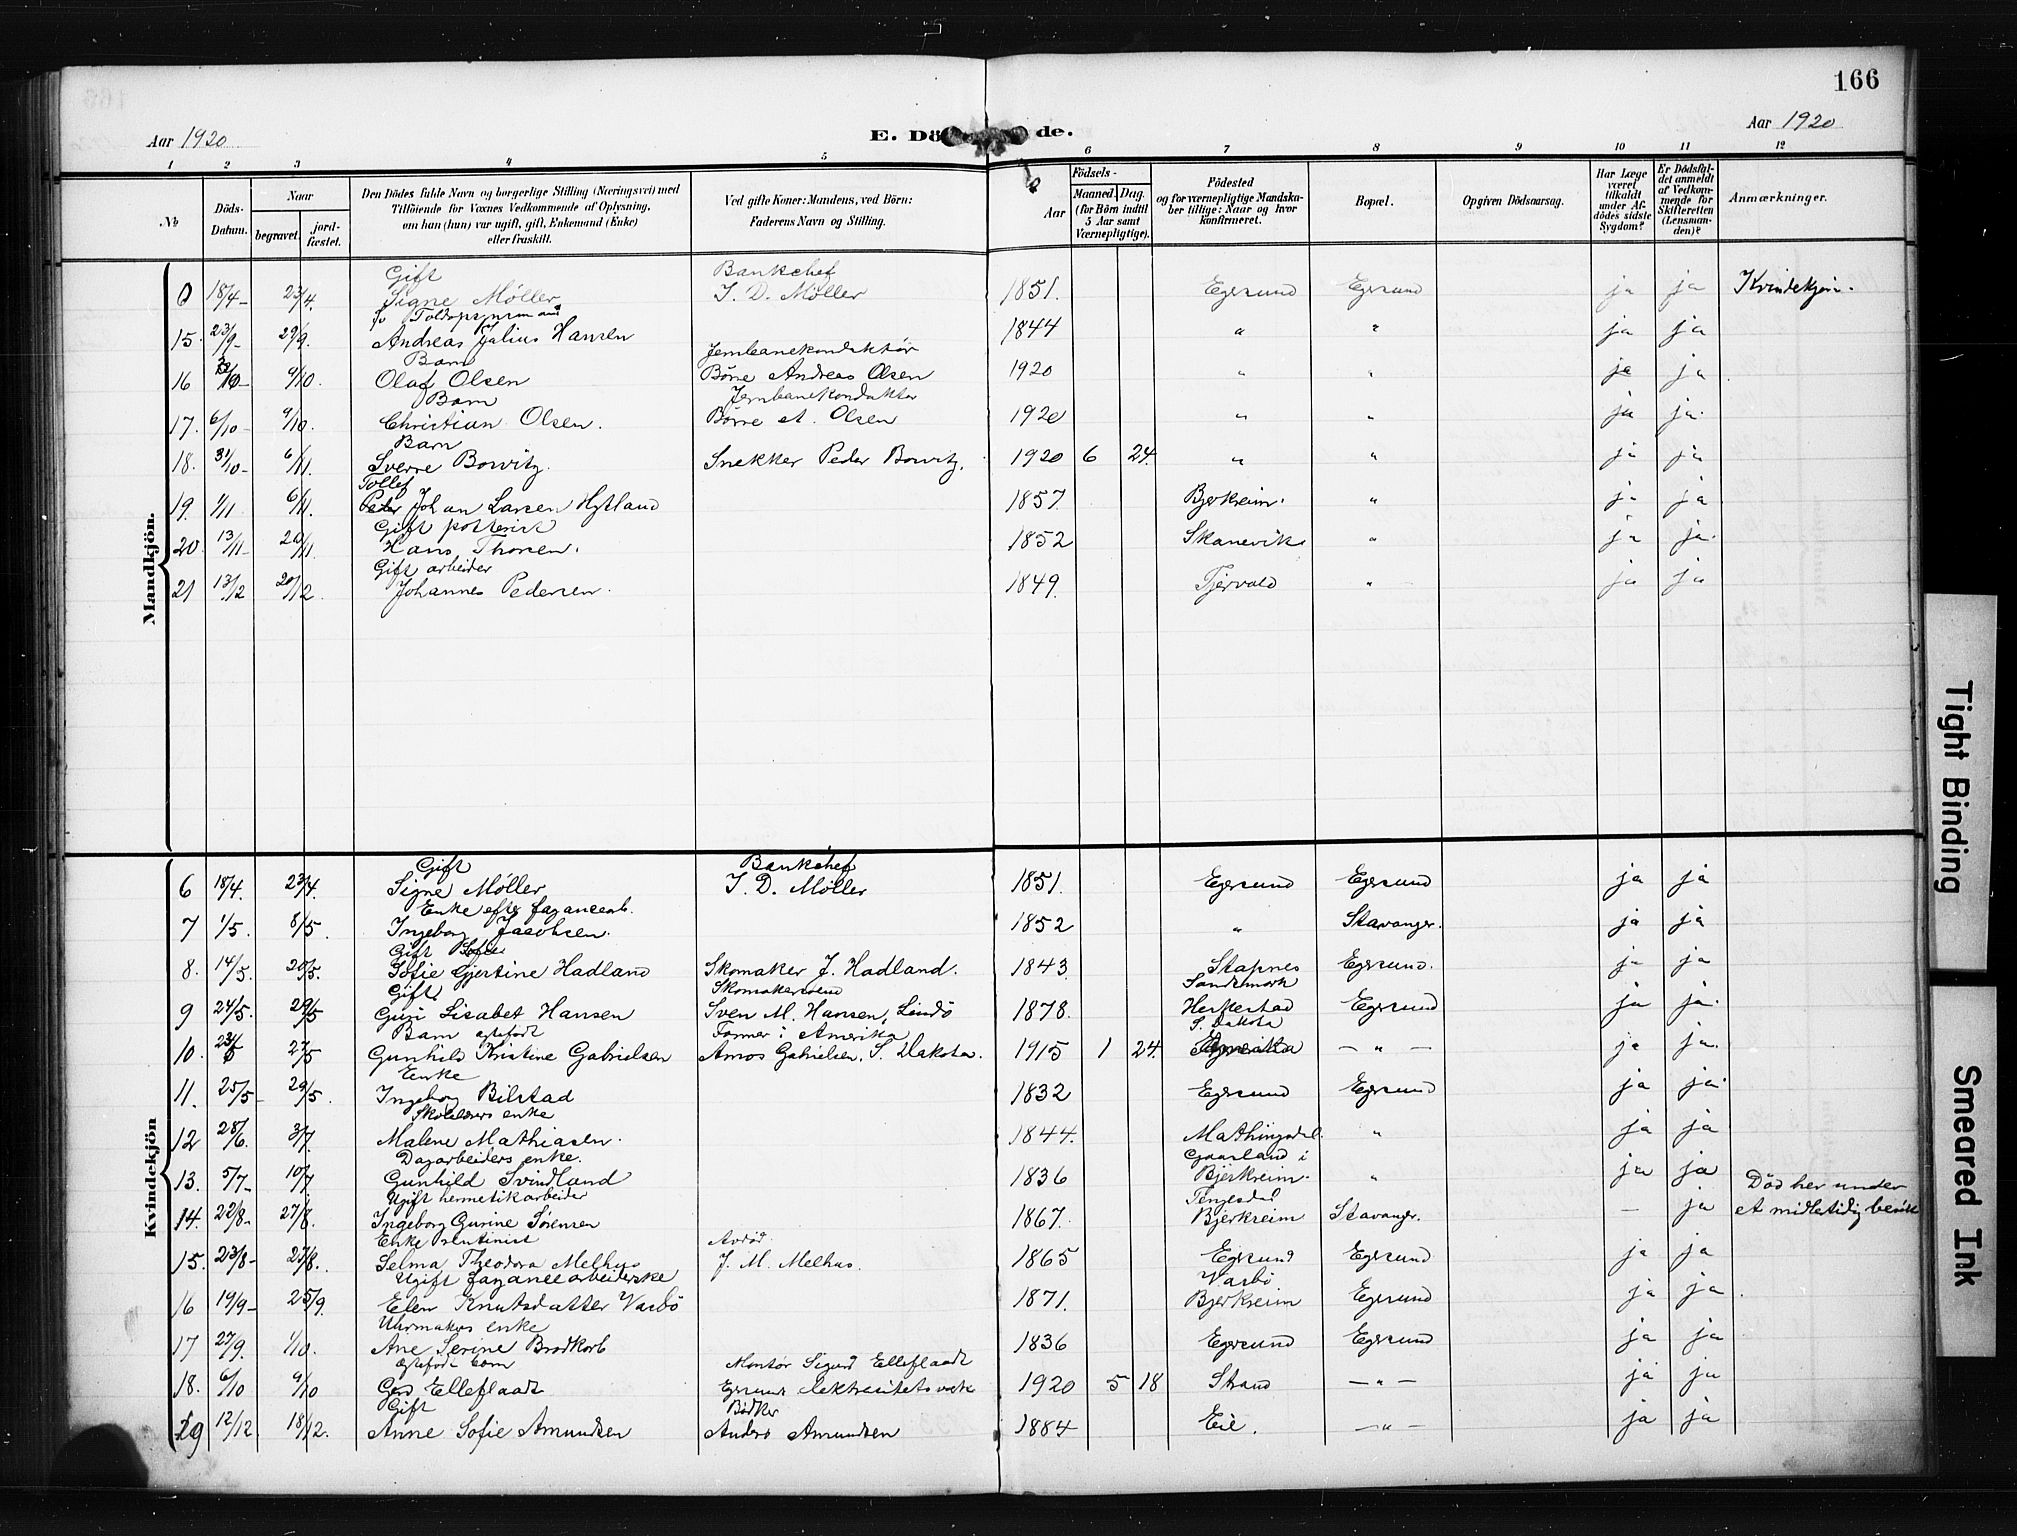 166
Aar 1920
E. Dö de.
Aar 1920
1 2 3 4 5 6 7 8 9 10 11 12
No
Döds-Datum.
Naar
begravet.
jord-fæstet.
Den Dödes fulde Navn og borgerlige Stilling (Næringsvei) med
Tilföiende for Voxnes Vedkommende af Oplysning,
om han (hun) var ugift, gift, Enkemand (Enke)
eller fraskilt.
Ved gifte Koner: Mandens, ved Börn:
Faderens Navn og Stilling.
Födsels-
Aar
Maaned. Dag.
(for Börn indtil
5 Aar samt
Værnepligtige).
Födested
og for værnepligtige Mandska-
ber tillige: Naar og hvor
konfirmeret.
Bopæl.
Opgiven Dödsaarsag.
Har Læge
været
tilkaldt
under Af-
dödes sidste
Sygdom?
Er Dödsfal-
det anmeldt
af Vedkom-
mende for
Skifteretten
(Lensman-
den)?
Anmærkninger.
Mandkjön.
Gift Bankchef
18/4 23/4. Signe Möller J. D. Möller 1851. Egersund Egersund ja ja Kvindekjön.
15. 23/9 29/9. Andreas Julius Hansen 1844 " " ja ja
Barn Jernbanekonduktör
16 9/10. Olaf Olsen Börre Andreas Olsen 1920 " " ja ja
Barn Jernbanekonduktör
17. 6/10 9/10. Christian Olsen. Börre A. Olsen 1920 " " ja ja.
Barn
18. 31/10 6/11. Sverre Bowitz. Snekker Peder Bowitz. 1920 6 24. " " ja ja
Tollef
19. 1/11 6/11. Peder Johan Larsen Hytland 1857. Bjerkreim. " ja ja
Gift potterist
20. 13/11 20/11 Hans Thorsen. 1852 Skanevik " ja ja.
Gift arbeider
21 13/12 20/12. Johannes Pedersen. 1849. Tjervald " ja ja
Kvindekjön
Gift Bankchef
6 18/4. 23/4. Signe Möller J. D. Möller 1851. Egersund Egersund ja ja
Enke efter fayancearb.
7 1/5. 8/5. Ingeborg Jacobsen. 1852 " Stavanger. ja ja
Gift Sofie
8. 14/5. 20/5. Sofie Gjertine Hadland Skomaker J. Hadland. 1843. Stapnes Egersund. ja ja
Gift Skomakersvend Sandsmork
9 24/5. 29/5 Guri Lisabet Hansen Sven M. Hansen, Lindö 1878. Heskestad Egersund ja ja.
Barn egtefödt Farmer i Amerika S. Dakota
10. 27/5 Gunhild Kristine Gabrielsen Amos Gabrielsen, S. Dakota. 1915 1 24. Amerika — " — ja ja.
Enke
11. 25/5 29/5. Ingeborg Bilstad 1832 Egersund Egersund ja ja.
Skolelærers enke
12 28/6. 3/7. Malene Mathiasen. 1844. Mathingsdal. " ja ja
Dagarbeiders enke. Gaasland i
13. 5/7 10/7 Gunhild Svindland 1836 Bjerkreim. " ja ja
Ugift hermetikarbeider Tengesdal Död her under
14. 22/8 27/8. Ingeborg Gurine Sörensen 1867. Bjerkreim Stavanger. — ja et midlertidig besök
Enke rentinist Avdöd
15. 23/8 27/8. Selma Theodora Melhus J. M. Melhus. 1865 Egersund Egersund ja ja
Ugift fayancearbeiderske Varbö
16 19/9 25/9. Elen Knutsdatter Varbö 1871. Bjerkreim Egersund ja ja
Uhrmakers enke
17 27/9. 1/10. Ane Serine Brodkorb 1836 Egersund Egersund ja ja
egtefödt barn Montör Sigurd Elleflaadt
18. 6/10 9/10 Gerd Elleflaadt Egersund elektricitetsverk 1920 5 18 Strand — " — ja ja
Gift Bödker
19 12/12 18/12. Anne Sofie Amundsen Anders Amundsen 1884 Eie. — " — ja ja
Tight Binding
Smeared Ink